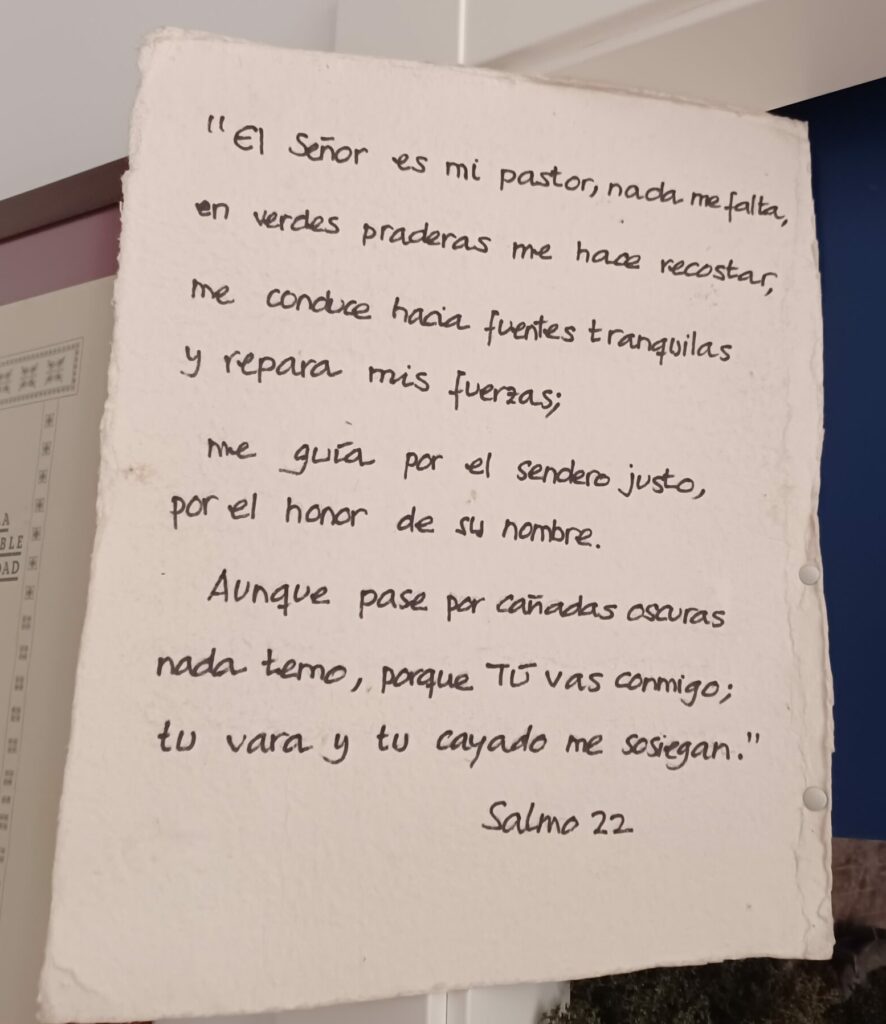 "El Señor es mi pastor, nada me falta,
en verdes praderas me hace recostar,
me conduce hacia fuentes tranquilas
y repara mis fuerzas;
me guía por el sendero justo,
por el honor de su nombre.
Aunque pase por cañadas oscuras
nada temo, porque TÚ vas conmigo;
tu vara y tu cayado me sosiegan."
Salmo 22